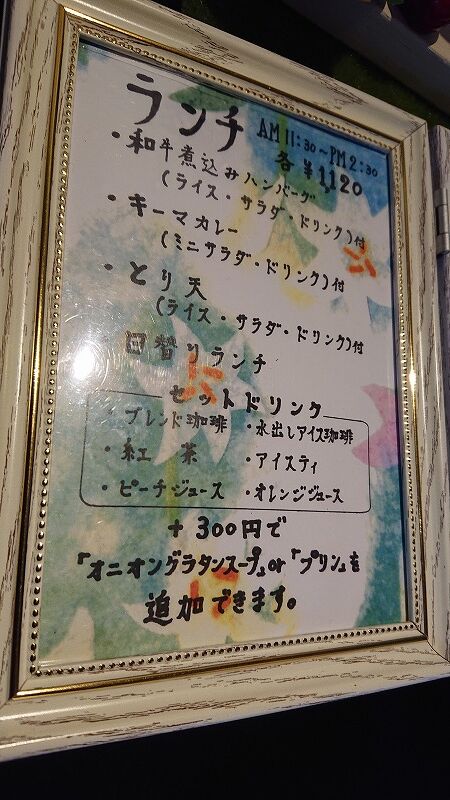 ランチ AM 11:30～PM 2:30
各￥1,120
・和牛煮込みハンバーグ
(ライス・サラダ・ドリンク)付
・キーマカレー
(ミニサラダ・ドリンク)付
・とり天
(ライス・サラダ・ドリンク)付
・日替りランチ
セットドリンク
・ブレンド珈琲 ・水出しアイス珈琲
・紅茶 ・アイスティ
・ピーチジュース ・オレンジジュース
+300円で
「オニオングラタンスープ」or「プリン」を
追加できます。